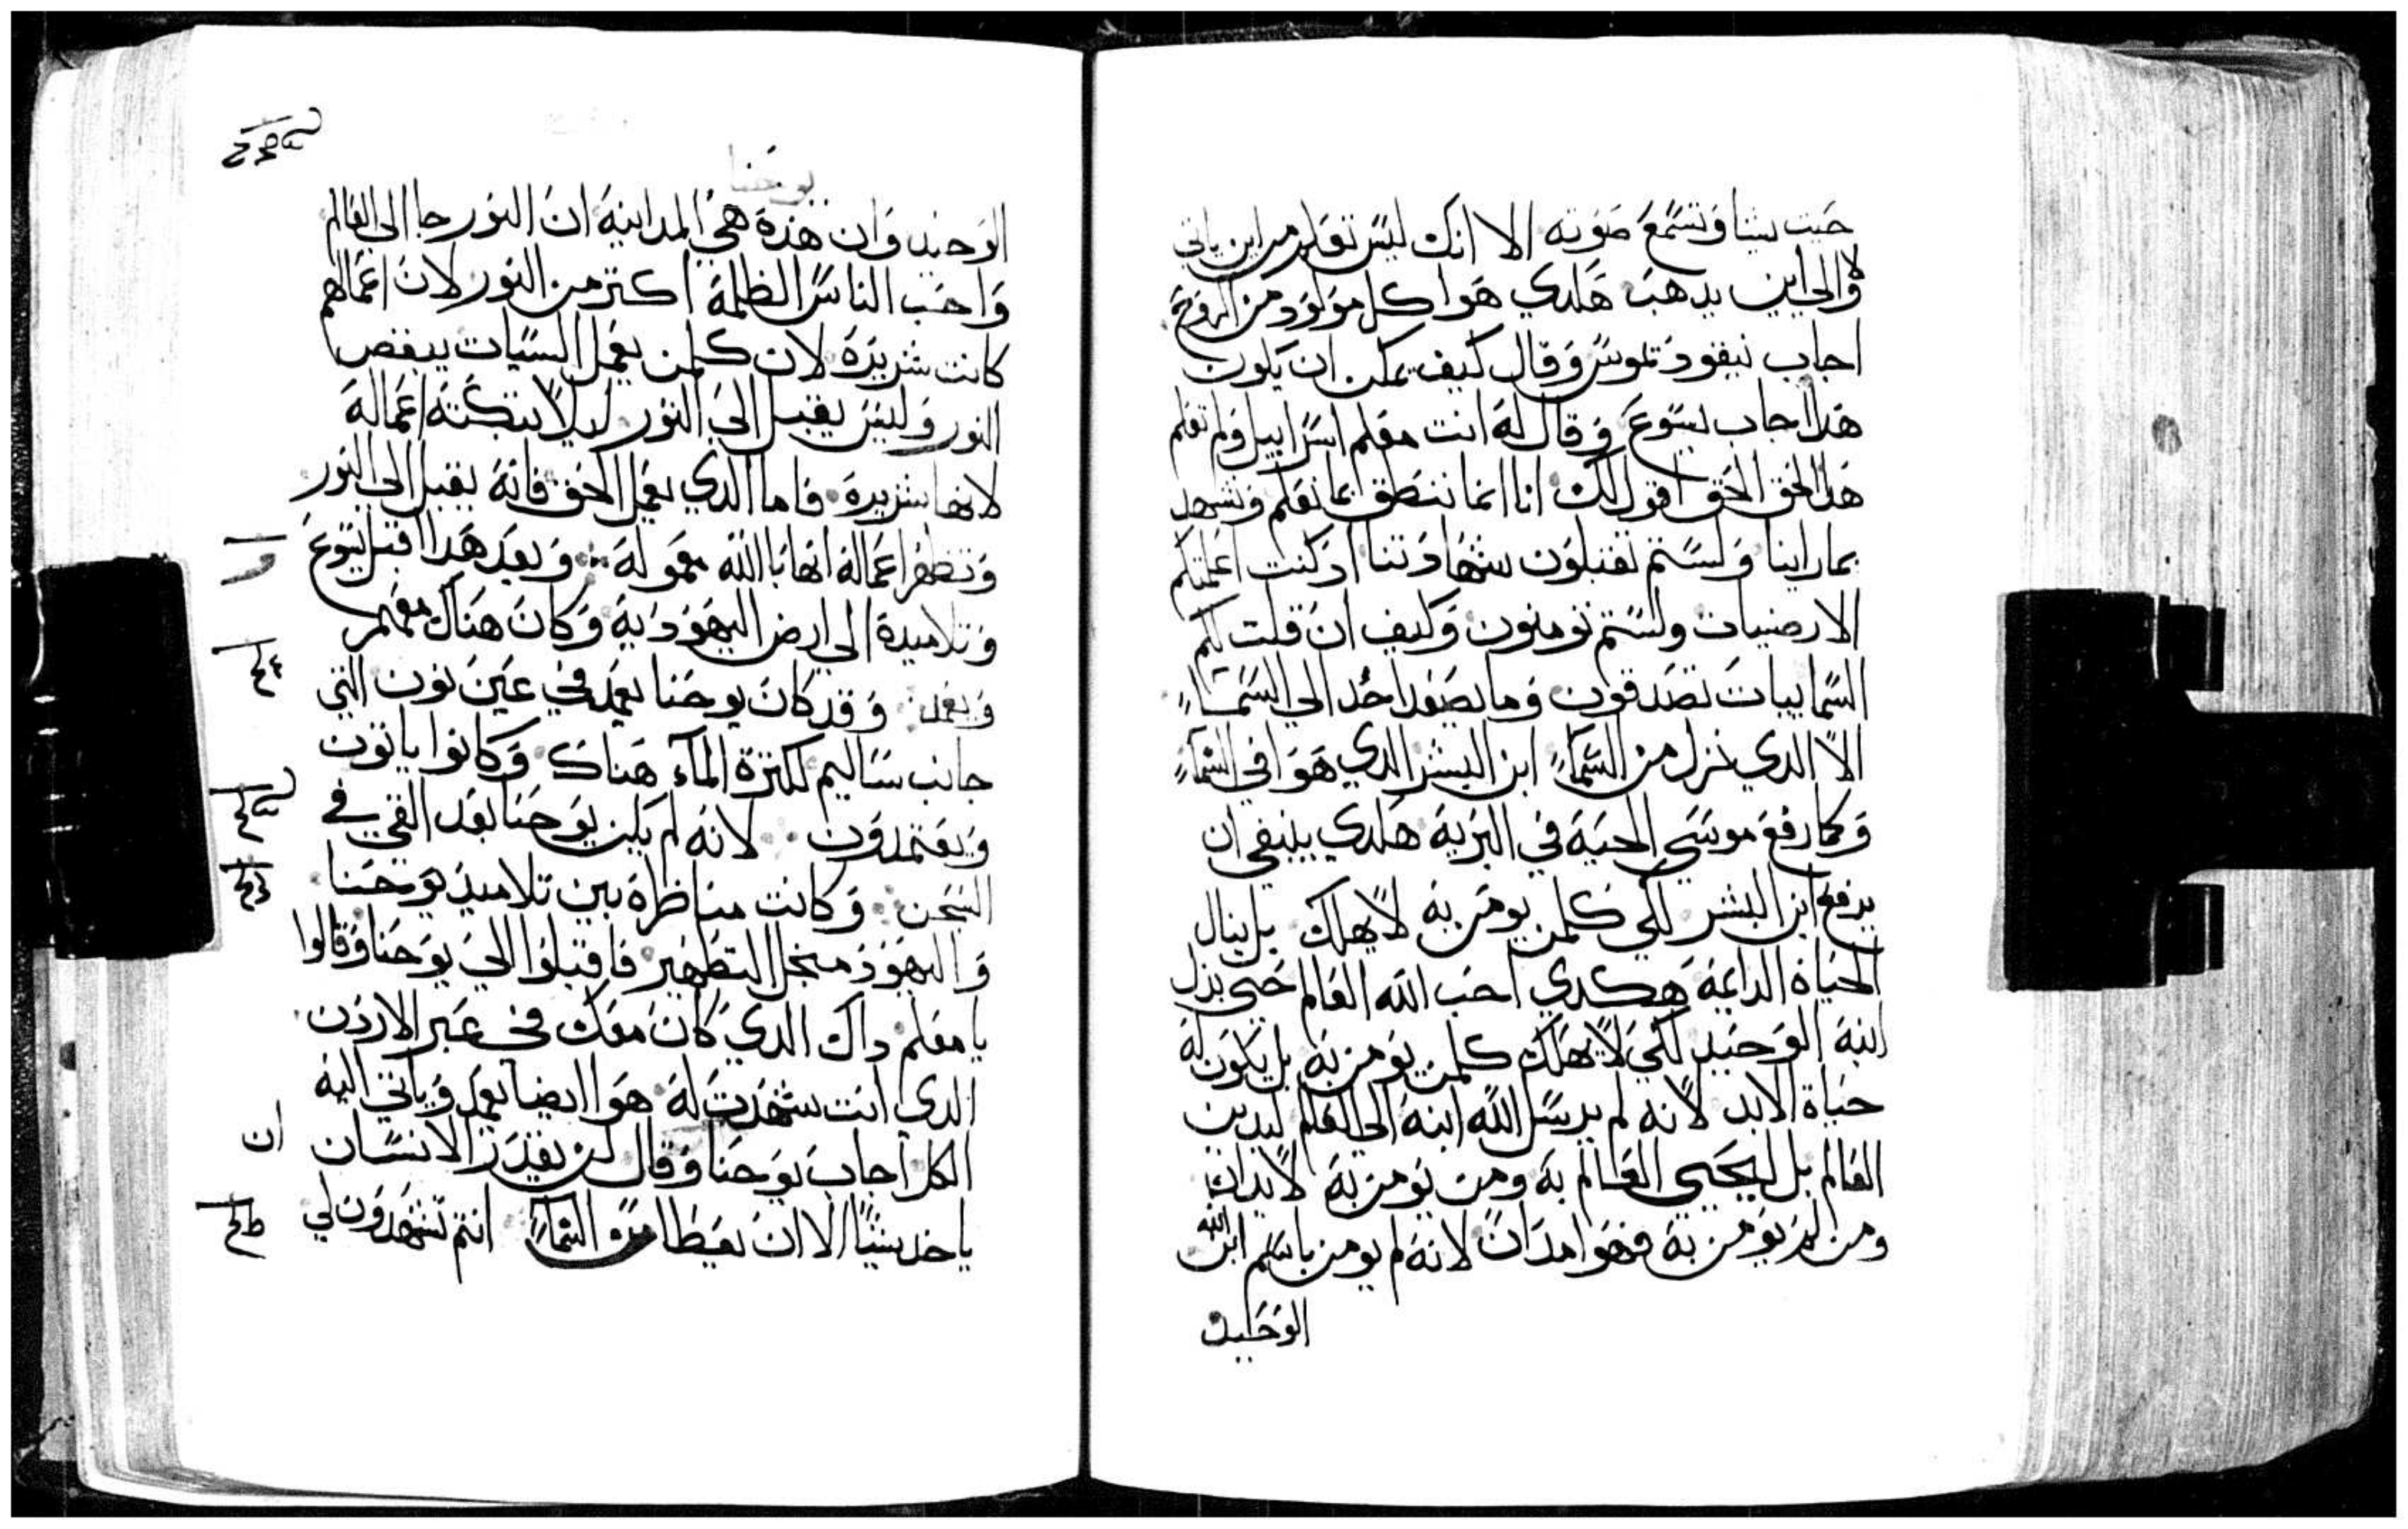 حيت يشا وتسمع صوته الا انك ليس تعلم من اين ياتي
ولا الي اين يدهب هكدي هو كل مولود من الروح
اجاب نيقوديموس وقال كيف يمكن ان يكون
هدا اجاب يسوع وقال له انت معلم اسراييل ولم تعلم
هدا الحق الحق اقول لك اننا انما ننطق بما نعلم ونشهد
بما راينا ولستم تقبلون شهادتنا اد كنت اعلمتكم
الارضيات ولستم تومنون وكيف ان قلت لكم
السماييات تصدقون وما يصعد احد الي السماء
الا الدي نزل من السماء ابن البشر الدي هو في السماء
وكما رفع موسي الحية في البرية هكدي ينبغي ان
يرفع ابن البشر لكي كلمن يومن به لا يهلك بل ينال
الحياة الدايمة هكدي احب الله العالم حتي بدل
ابنه الوحيد لكي لا يهلك كلمن يومن به بل يكون له
حياة الابد لانه لم يرسل الله ابنه الي العالم ليدين
العالم بل ليحيي العالم به ومن يومن به لا يدان
ومن لم يومن به فهو مدان لانه لم يومن باسم ابن الله
الوحيد
يوحنا
الوحيد وان هده هي المداينة ان النور جا الي العالم
واحب الناس الظلمة اكتر من النور لان اعمالهم
كانت شريرة لان كلمن يعمل السيات يبغض
النور وليس يقبل الي النور ليلا تبكته اعماله
لانها شريرة فاما الدي يعمل الحق فانه يقبل الي النور
وتظهر اعماله انها بالله معموله وبعد هدا اقبل يسوع
وتلاميده الي ارض اليهودية وكان هناك معهم
ويعمد وقد كان يوحنا يعمد في عين نون التي
جانب ساليم لكترة الماء هناك وكانوا ياتون
ويعتمدون لانه لم يكن يوحنا بعد القي في
السجن وكانت مناظرة بين تلاميد يوحنا
واليهود من اجل التطهير فاقبلوا الي يوحنا وقالوا
يا معلم داك الدي كان معك في عبر الاردن
الدي انت شهدت له هوا ايضا يعمد وياتي اليه
الكل اجاب يوحنا وقال لن يقدر الانسان ان
ياخد شيئا الا ان يعطا من السماء انتم تشهدون لي